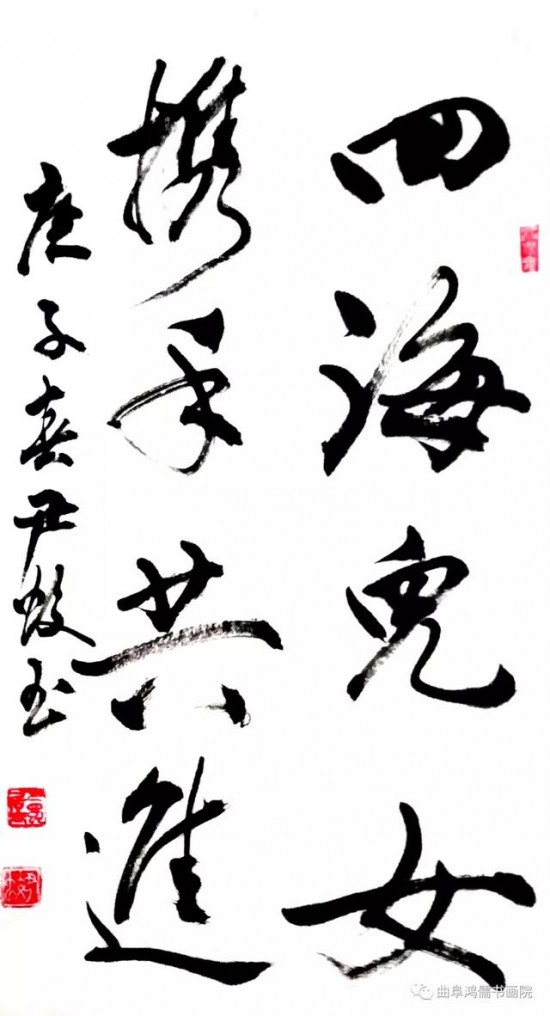 四海兒女
攜手共進
庚子春尹敏书
曲阜鸿儒书画院